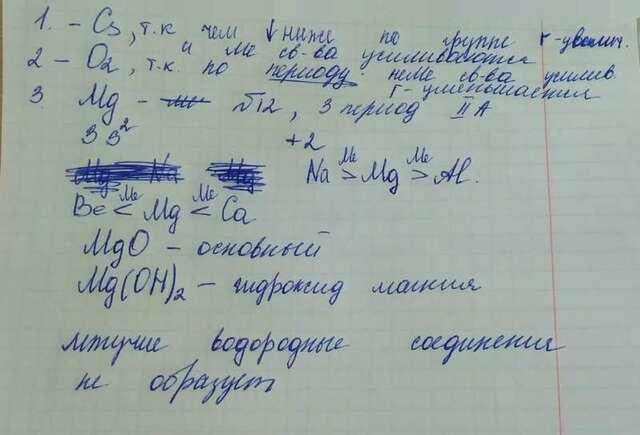 1. - Cs, т.к чем ↓ ниже по группе r - увелич.
и Ме св-ва усиливаются
2 - O2, т.к. по периоду неме св-ва усилив.
r - уменьшается
3. Mg - №12, 3 период II A
3 s²        +2
Na >Ме Mg >Ме Al.
Be <Ме Mg <Ме Ca
MgO - основный
Mg(OH)2 - гидроксид магния
летучие водородные соединения
не образует